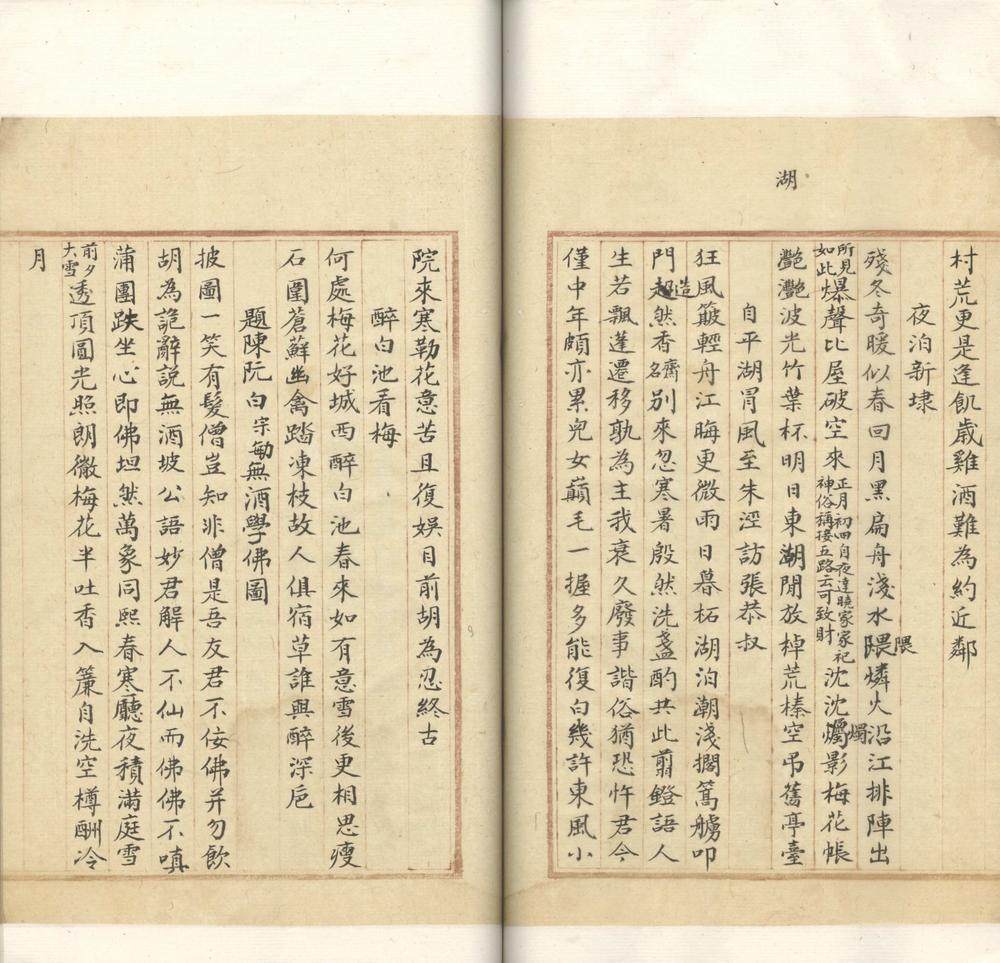 湖
村荒更是逢飢歲雞酒難為約近鄰
夜泊新埭
殘冬奇暖似春回月黑扁舟淺水隈燐火沿江排陣出
隈
所見
如此爆聲比屋破空來正月初四自夜達曉家家祀
神俗稱接五路云可致財沈沈燭影梅花帳
燭
艷灩波光竹葉杯明日東湖閒放棹荒榛空弔舊亭臺
自平湖冒風至朱涇訪張恭叔
狂風簸輕舟江晦更微雨日暮柘湖泊潮淺擱篙艣叩
門超然香
造
別來忽寒暑殷然洗盞酌共此剪鐙語人
生若飄蓬遷移孰為主我衰久廢事諧俗猶恐忤君今
僅中年頗亦累兒女巔毛一握多能復白幾許東風小
院來寒勒花意苦且復娛目前胡為忍終古
醉白池看梅
何處梅花好城西醉白池春來如有意雪後更相思瘦
石圍蒼蘚幽禽踏凍枝故人俱宿草誰與醉深卮
題陳阮白宗敏無酒學佛圖
披圖一笑有髮僧豈知非僧是吾友君不佞佛并勿飲
胡為詭辭說無酒坡公語妙君解人不仙而佛佛不嗔
蒲團趺坐心即佛坦然萬象同熙春寒廳夜積滿庭雪
前夕
大雪透頂圓光照朗徹梅花半吐香入簾自洗空樽酬冷
月